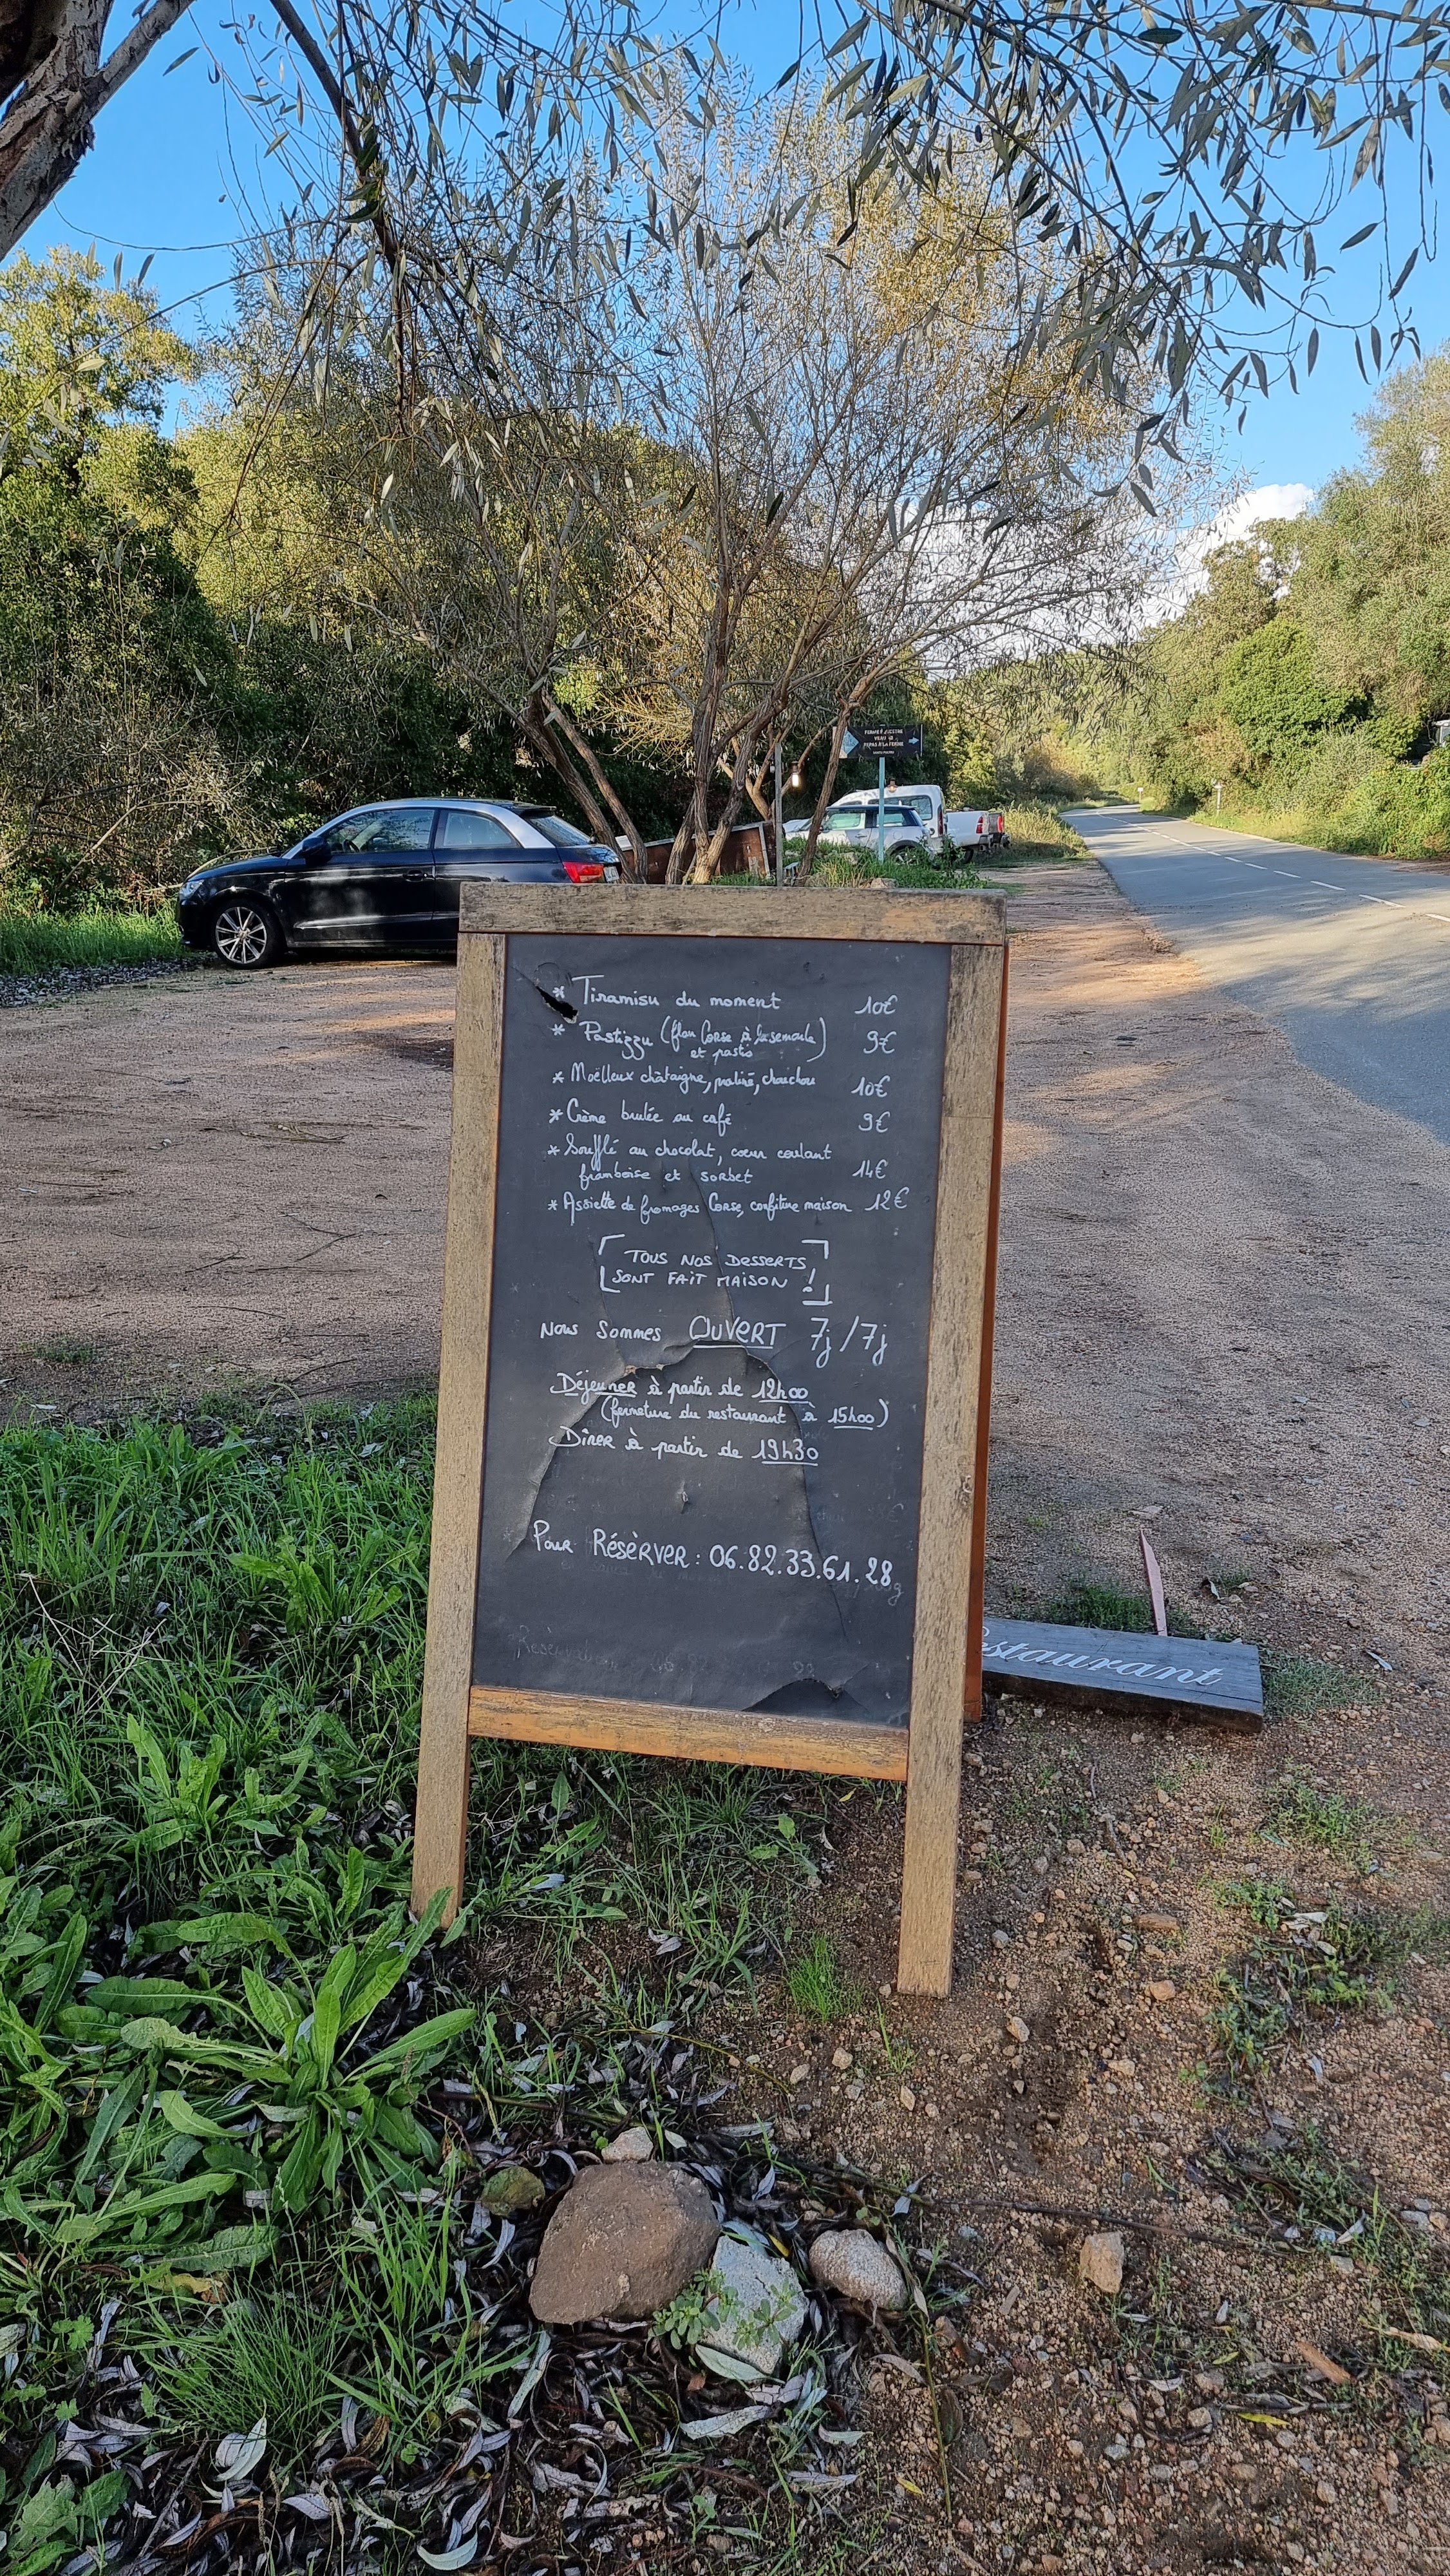 * Tiramisu du moment 10€
* Pastizzu (flan Corse à la semoule) 9€
et pastis
* Moëlleux châtaigne, praliné, chouchou 10€
* Crème brulée au café 9€
* Soufflé au chocolat, cœur coulant
framboise et sorbet 14€
* Assiette de fromages Corse, confiture maison 12€
TOUS NOS DESSERTS
SONT FAIT MAISON !
NOUS SOMMES OUVERT 7j/7j
Déjeuner à partir de 12h00
(fermeture du restaurant à 15h00)
Dîner à partir de 19h30
Pour Résèrver : 06.82.33.61.28
estaurant
REPAS À LA FERME